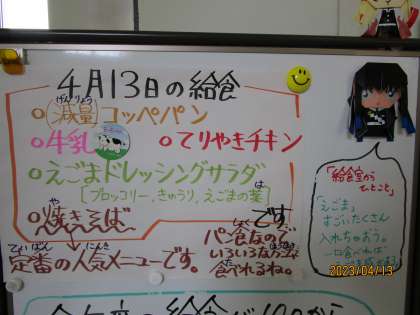 4月13日の給食
げんりょう
○減量コッペパン
○牛乳 ○てりやきチキン
○えごまドレッシングサラダ
[ブロッコリー、きゅうり、えごまの葉]
○焼きそば
です。
定番の人気メニューです。
パン食なので
いろいろな方法で
食べれるね。
「給食室から
ひとこと」
「えごま」
すごいたくさん
入れちゃおう。
一口食べれば
2023/04/13